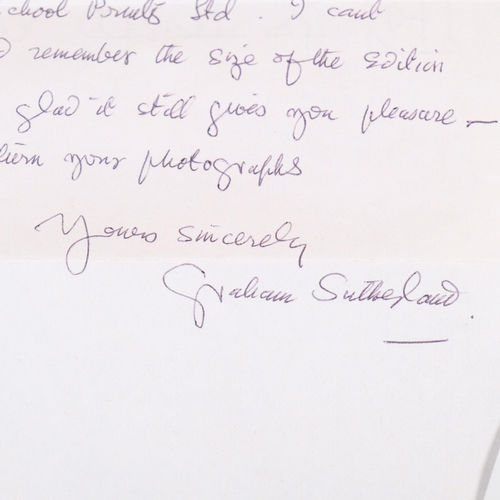 chool Prints Ltd. I cant
remember the size of the edition
glad it still gives you pleasure —
your photographs
Yours sincerely
Graham Sutherland.